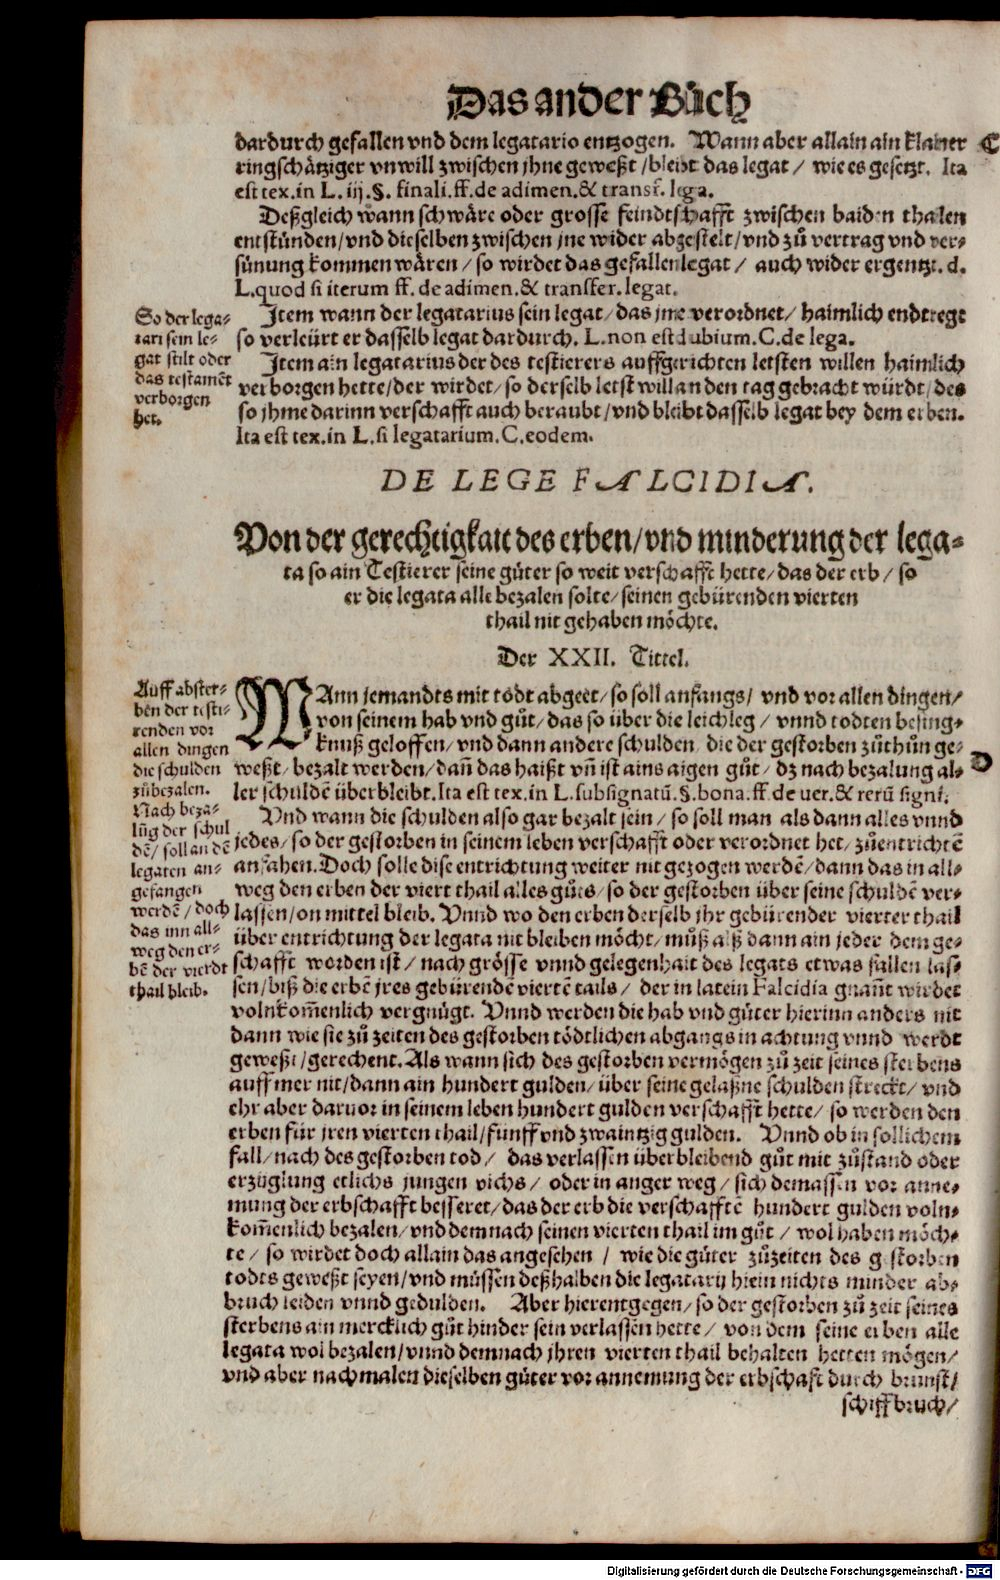 Das ander Bůch
dardurch gefallen vnd dem legatario entzogen. Wann aber allain ain klainer
C
ringschätziger vnwill zwischen jhne geweßt / bleibt das legat / wie es gesetzt. Ita
est tex. in L. iij. §. finali. ff. de adimen. & transf. lega.
Deßgleich wann schwäre oder grosse feindtschafft zwischen baiden thalen
entstünden / vnd dieselben zwischen jne wider abgestelt / vnd zů vertrag vnd ver-
sünung kommen wären / so wirdet das gefallen legat / auch wider ergentzt. d.
L. quod si iterum ff. de adimen. & transfer. legat.
So der lega-
tari sein le-
gat stilt oder
das testamēt
verborgen
het.
Item wann der legatarius sein legat / das jme verordnet / haimlich endtregt
so verleürt er dasselb legat dardurch. L. non est dubium. C. de lega.
Item ain legatarius der des testierers auffgerichten letsten willen haimlich
verborgen hette / der wirdet / so derselb letst will an den tag gebracht würdt / des
so jhme darinn verschafft auch beraubt / vnd bleibt dasselb legat bey dem erben.
Ita est tex. in L. si legatarium. C. eodem.
DE LEGE FALCIDIA.
Von der gerechtigkait des erben / vnd minderung der lega-
ta so ain Testierer seine gůter so weit verschafft hette / das der erb / so
er die legata alle bezalen solte / seinen gebürenden vierten
thail nit gehaben möchte.
Der XXII. Tittel.
Auff abster-
ben der testi-
renden vor
allen dingen
die schulden
zůbezalen.
Nach beza-
lūg der schul
dē / soll an dē
legaten an-
gefangen
werdē / doch
das inn all-
weg den er-
bē der vierdt
thail bleib.
WAnn jemandts mit todt abgeet / so soll anfangs / vnd vor allen dingen /
von seinem hab vnd gůt / das so über die leichleg / vnnd todten besing-
knuß geloffen / vnd dann andere schulden / die der gestorben zůthůn ge-
D
weßt / bezalt werden / dañ das haißt vñ ist ains aigen gůt / dz nach bezalung al-
ler schuldē überbleibt. Ita est tex. in L. subsignatū. §. bona. ff. de uer. & rerū signi.
Vnd wann die schulden also gar bezalt sein / so soll man als dann alles vnnd
jedes / so der gestorben in seinem leben verschafft oder verordnet het / zůentrichtē
anfahen. Doch solle dise entrichtung weiter nit gezogen werdē / dann das in all-
weg den erben der viert thail alles gůts / so der gestorben über seine schuldē ver-
lassen / on mittel bleib. Vnnd wo den erben derselb jhr gebürender vierter thail
über entrichtung der legata nit bleiben möcht / můß alß dann ain jeder dem ge-
schafft worden ist / nach grösse vnnd gelegenhait des legats etwas fallen las-
sen / biß die erbē jres gebürendē viertē tails / der in latein Falcidia gnañt wirdet
volnkom̄enlich vergnügt. Vnnd werden die hab vnd gůter hierinn anders nit
dann wie sie zů zeiten des gestorben tödtlichen abgangs in achtung vnnd werdt
geweßt / gerechent. Als wann sich des gestorben vermögen zů zeit seines sterbens
auff mer nit / dann ain hundert gulden / über seine gelaßne schulden streckt / vnd
ehr aber daruor in seinem leben hundert gulden verschafft hette / so werden den
erben für jren vierten thail / fünff vnd zwaintzig gulden. Vnnd ob in sollichem
fall / nach des gestorben tod / das verlassen überbleibend gůt mit zůstand oder
erzüglung etlichs jungen vichs / oder in anger weg / sich demassen vor anne-
mung der erbschafft besseret / das der erb die verschafftē hundert gulden voln-
kom̄enlich bezalen / vnd demnach seinen vierten thail im gůt / wol haben möch-
te / so wirdet doch allain das angesehen / wie die gůter zůzeiten des gestorben
todts geweßt seyen / vnd müssen deßhalben die legatarij hiein nichts minder ab-
bruch leiden vnnd gedulden. Aber hierentgegen / so der gestorben zů zeit seines
sterbens ain mercklich gůt hinder sein verlassen hette / von dem seine erben alle
legata wol bezalen / vnnd demnach jhren vierten thail behalten hetten mögen /
vnd aber nachmalen dieselben gůter vor annemung der erbschaft durch brunst /
schiffbruch /
Digitalisierung gefördert durch die Deutsche Forschungsgemeinschaft - DFG